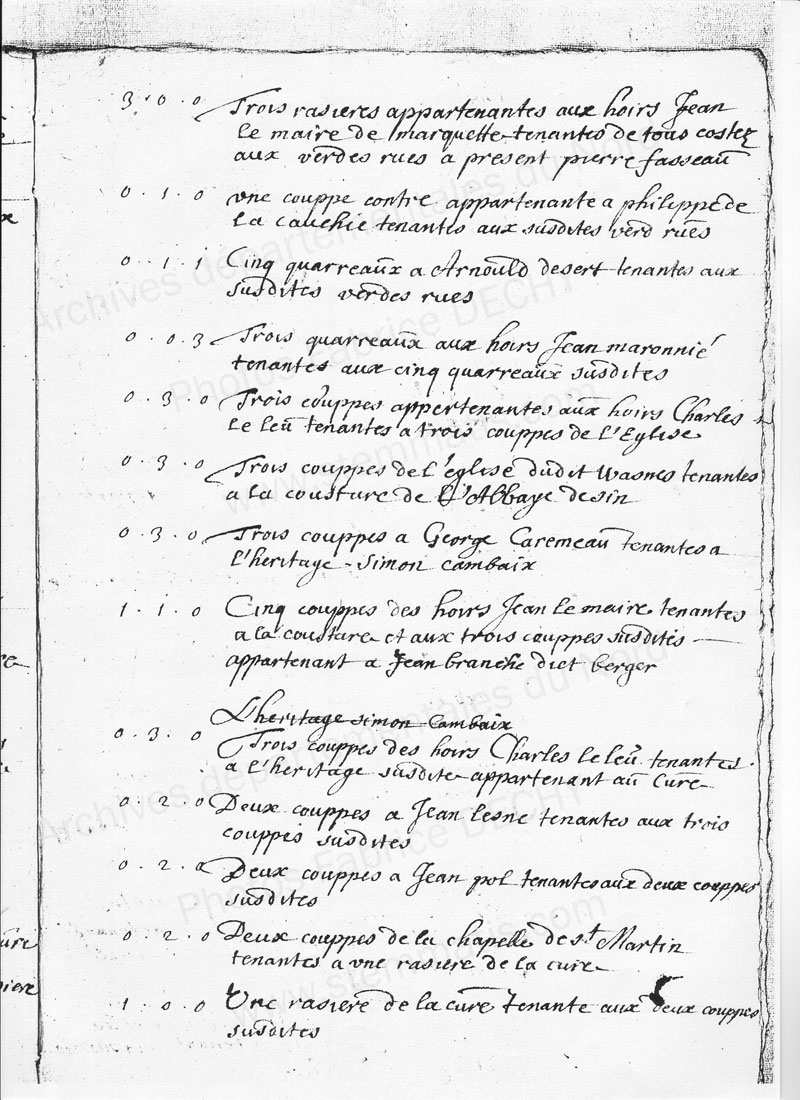 3 . 0 . 0 Trois rasieres appartenantes aux hoirs Jean
le maire de marquette tenantes de tous costez
aux verdes rues a present pierre fasseau
0 . 1 . 0 vne couppe contre appartenante a philippe de
la cauchie tenantes aux susdites verd rues
0 . 1 . 1 Cinq quarreaux a Arnould desert tenantes aux
susdites verdes rues
0 . 0 . 3 Trois quarreaux aux hoirs Jean maronnié
tenantes aux cinq quarreaux susdites
0 . 3 . 0 Trois couppes appertenantes aux hoirs Charles
le leu tenantes a trois couppes de l'Eglise
0 . 3 . 0 Trois couppes de l'église dudit Wasnes tenantes
a la cousture de L'Abbaye de sin
0 . 3 . 0 Trois couppes a George Caremeau tenantes a
l'heritage simon cambaix
1 . 1 . 0 Cinq couppes des hoirs Jean le maire tenantes
a la cousture et aux trois couppes susdites
appartenant a Jean branche dict berger
L'heritage simon Cambaix
0 . 3 . 0 Trois couppes des hoirs Charles le leu tenantes
a l'heritage susdite appartenant au Cure
0 . 2 . 0 Deux couppes a Jean lesne tenantes aux trois
couppes susdites
0 . 2 . 0 Deux couppes a Jean pol tenantes aux deux couppes
susdites
0 . 2 . 0 Deux couppes de la chapelle de st Martin
tenantes a vne rasiere de la cure
1 . 0 . 0 Une rasiere de la cure tenante aux deux couppes
susdites
Archives départementales du Nord
Photos Fabrice DECHT